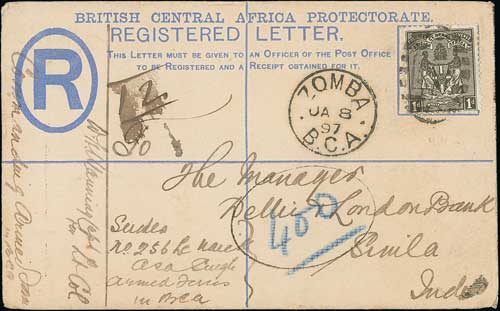 BRITISH CENTRAL AFRICA PROTECTORATE.
REGISTERED LETTER.
THIS LETTER MUST BE GIVEN TO AN OFFICER OF THE POST OFFICE
TO BE REGISTERED AND A RECEIPT OBTAINED FOR IT.
R
1d
1d
ZOMBA
JA 8
97
B.C.A.
The Manager
Delhi & London Bank
Simla
India
400
No 256
Singh
Armed Forces
in BCA
Commanding Armed Forces
Manning Capt
for Lt Col